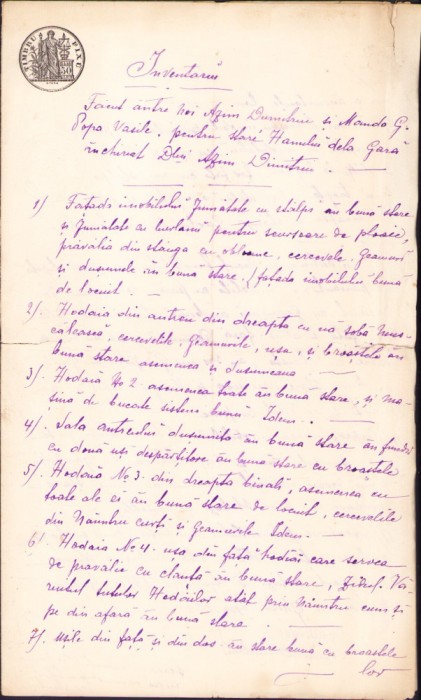 TIMBRU FIX
50
Inventariu
Făcut între noi Azim Dumitru și Manda G.
Popa Vasile, pentru stare Hanului dela Gară
închiriat Dlui Azim Dimitru. —
1) Fațada imobilului Jumătate cu stâlpi în bună stare
și Jumătate cu pentru scursoare de ploaie,
prăvalia din stanga cu obloane, cercevele, Geamuri
și dusumele în bună stare, fațada imobilului bună
de locuit. —
2). Hodaia din antreu din dreapta cu uă sobă
cercevelile, Geamurile, ușa, și broaștele în
bună stare asemenea și dusumeaua. —
3) Hodaiă No 2. asemenea toate în bună stare, și ma-
șină de bucate sistem bună Idem. —
4). Sala antreului dusumită în bună stare în fundu
cu două uși despărțitore în bună stare cu broastele
5). Hodaiă No 3. din dreapta , asemenea cu
toate ale ei în bună stare de locuit, cercevelele
din năuntru curți și Geamurile Idem. —
6) Hodaia No 4. usa din față hodăi care servea
de pravalie cu clanță în bună stare, Zidul. Vă-
rutul tutulor Hodăilor atât prin năuntru cum și
pe din afară în bună stare. —
7). Ușile din față și din dos în stare bună cu broastele
lor